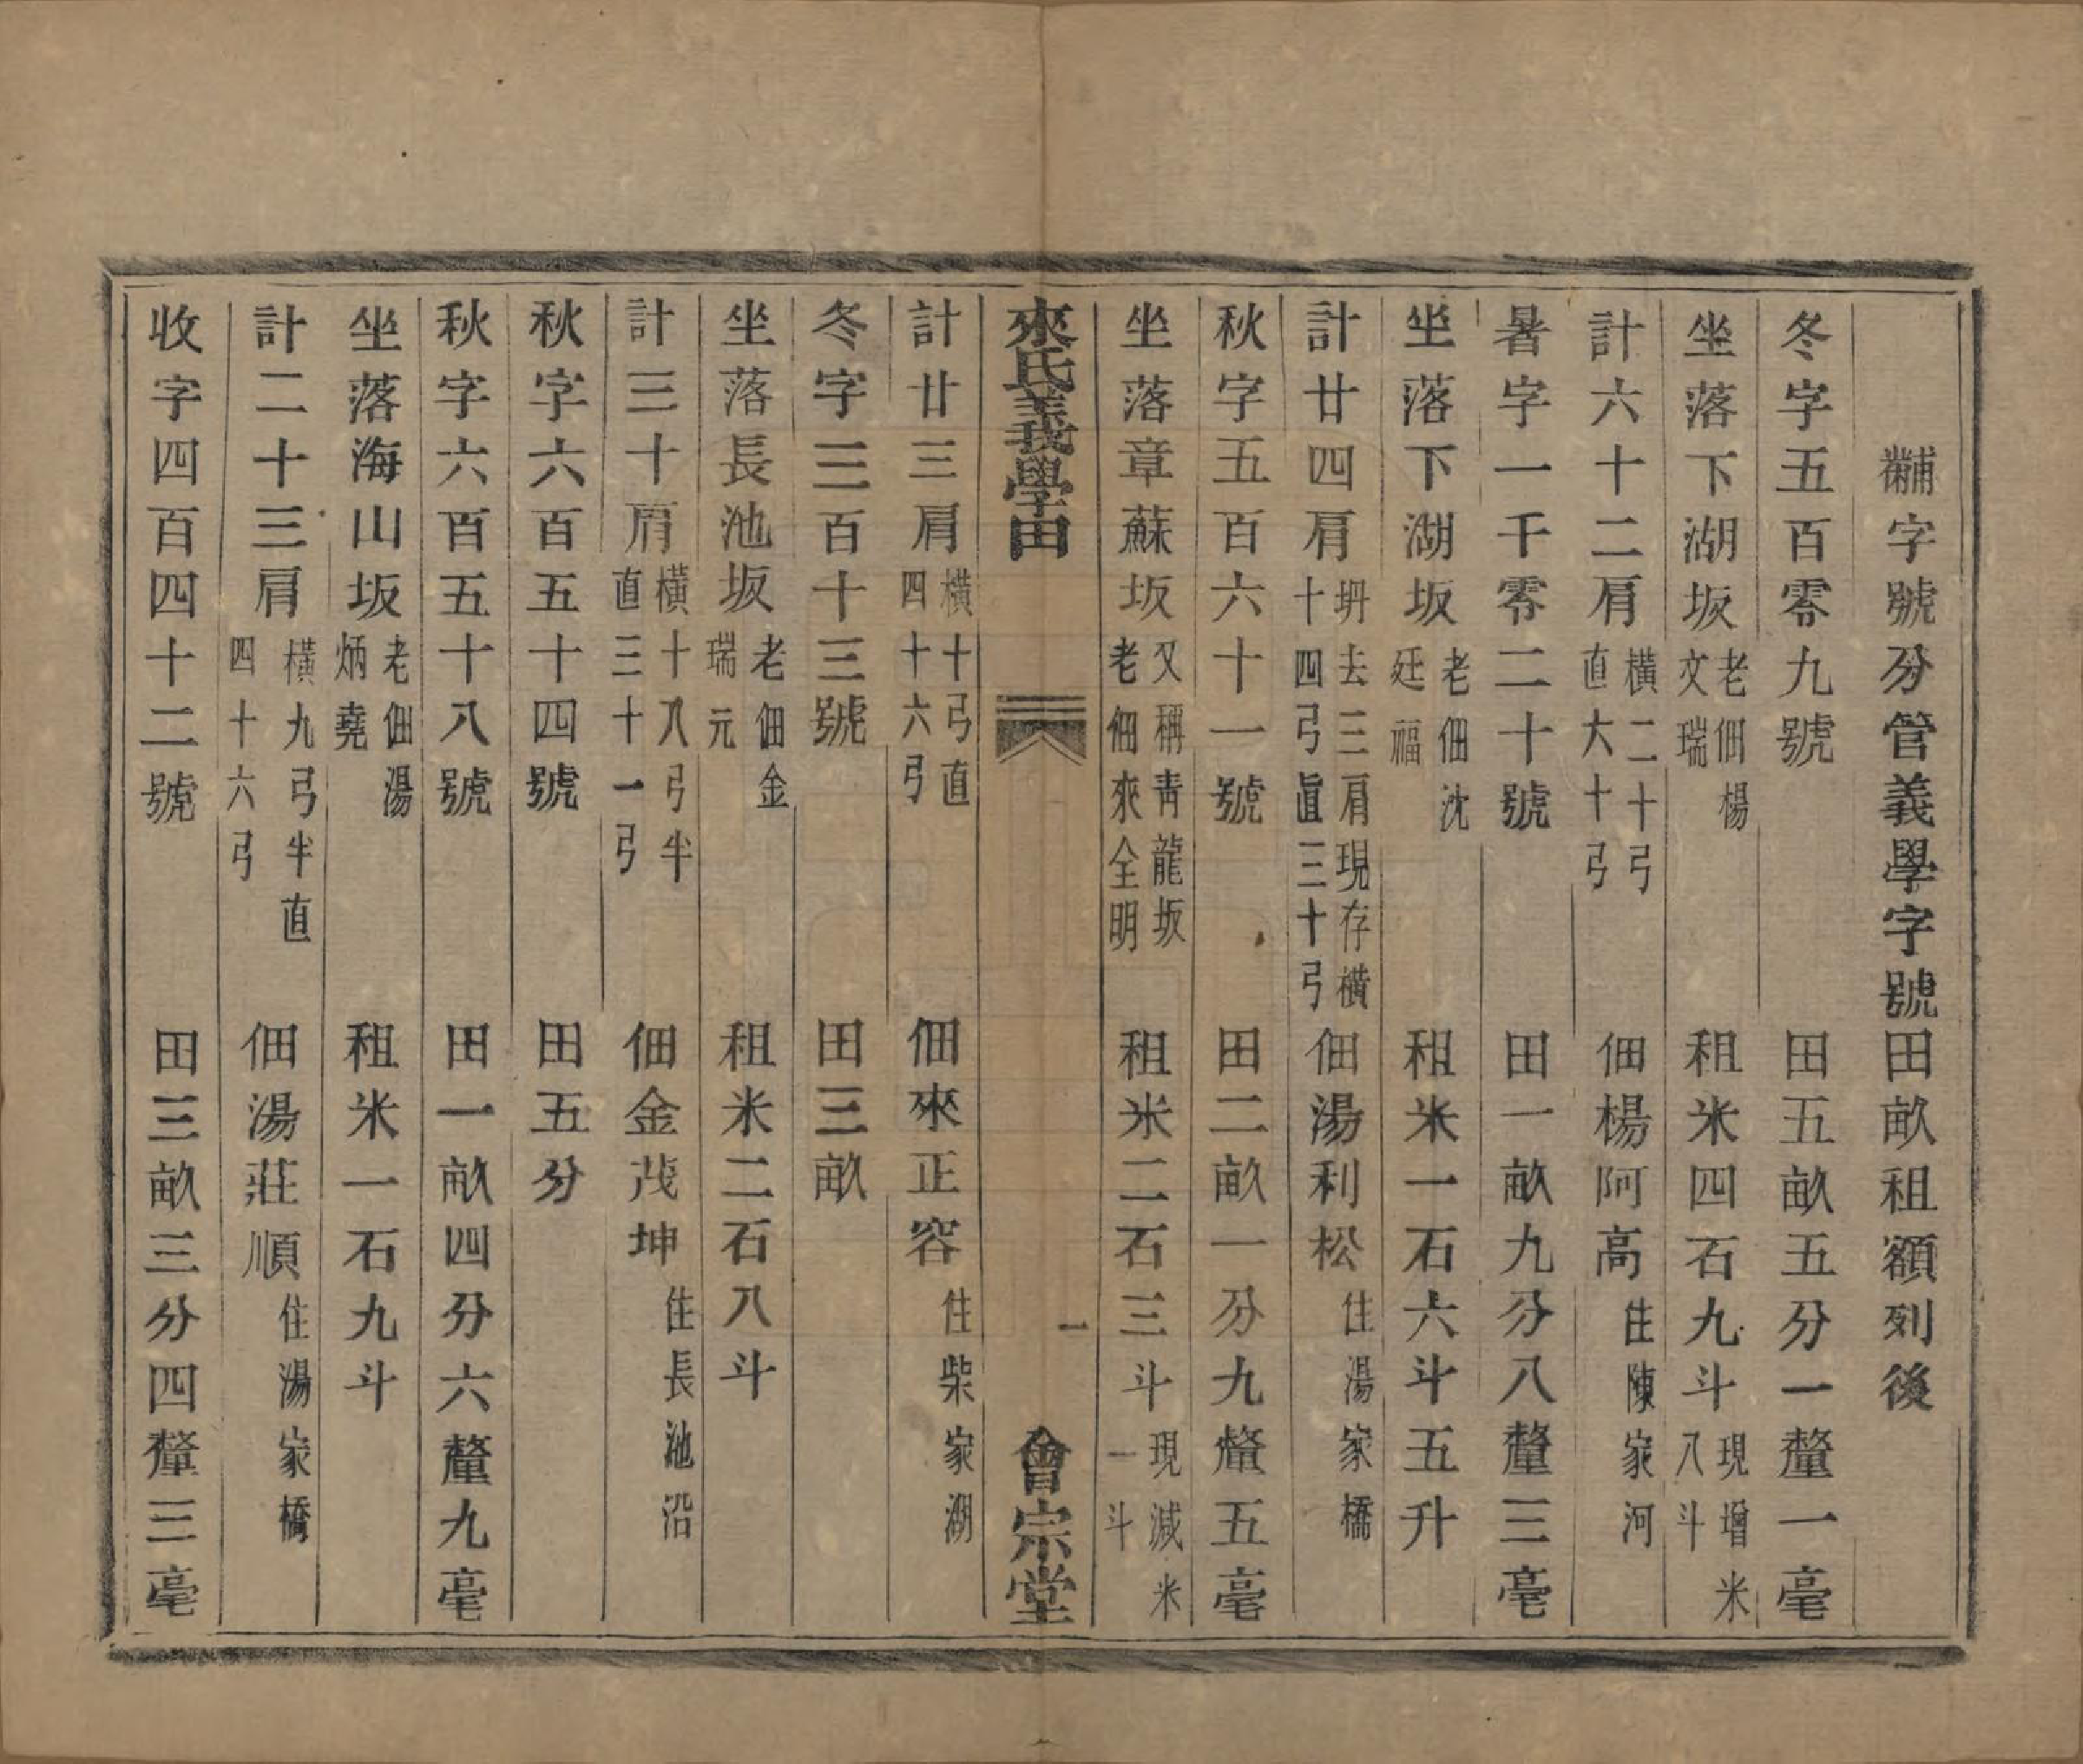 黼字號分管義學字號田畝租額列後
冬字五百零九號　田五畝五分一釐一毫
坐落下湖坂老佃楊文瑞　租米四石九斗現增米八斗
計六十二肩橫二十弓直大十弓　佃楊阿高住陳家河
暑字一千零二十號　田一畝九分八釐三毫
坐落下湖坂老佃沈廷福　租米一石六斗五升
計廿四肩坍去三肩現存橫十四弓直三十弓　佃湯利松住湯家橋
秋字五百六十一號　田二畝一分九釐五毫
坐落章蘇坂又稱青龍坂老佃來全明　租米二石三斗現減米一斗
來氏義學田　一　會宗堂
計廿三肩橫十弓直四十六弓　佃來正容住柴家湖
冬字三百十三號　田三畝
坐落長池坂老佃金瑞元　租米二石八斗
計三十肩橫十八弓半直三十一弓　佃金茂坤住長池沿
秋字六百五十四號　田五分
秋字六百五十八號　田一畝四分六釐九毫
坐落海山坂老佃湯炳堯　租米一石九斗
計二十三肩橫九弓半直四十六弓　佃湯莊順住湯家橋
收字四百四十二號　田三畝三分四釐三毫